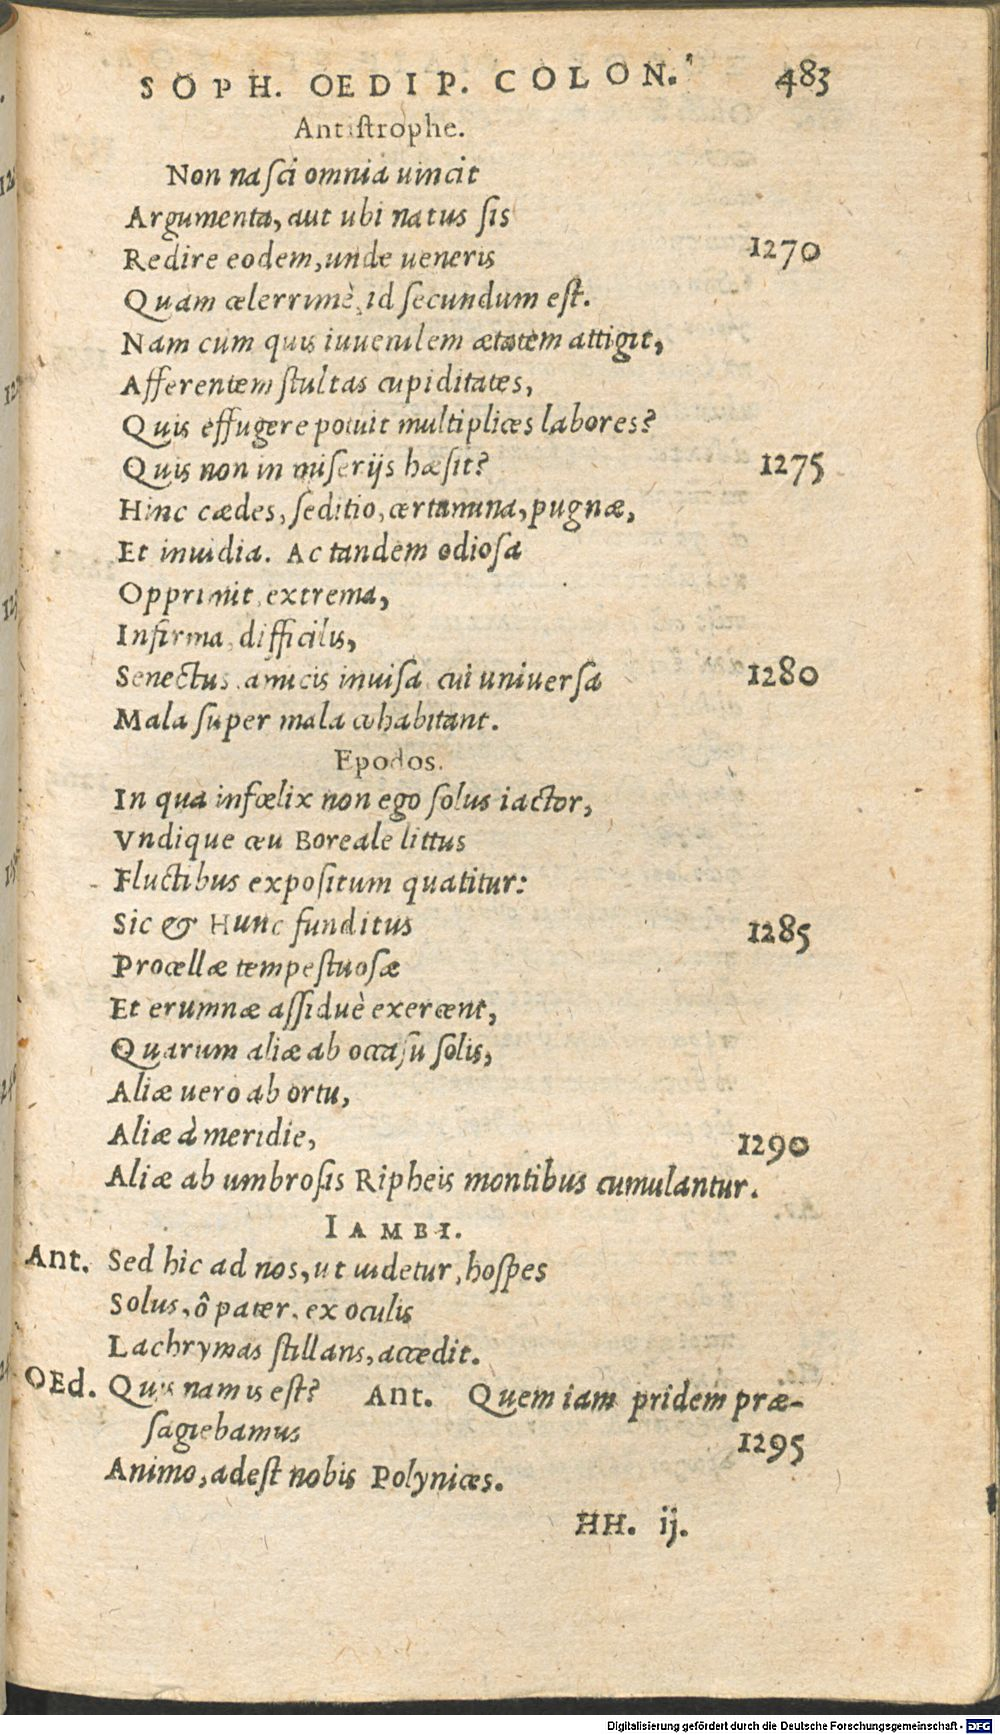 SOPH. OEDIP. COLON. 483
Antistrophe.
Non nasci omnia uincit
Argumenta, aut ubi natus sis
Redire eodem, unde ueneris 1270
Quam celerrimè, id secundum est.
Nam cum quis iuuenilem ætatem attigit,
Afferentem stultas cupiditates,
Quis effugere potuit multiplices labores?
Quis non in miserijs hæsit? 1275
Hinc cædes, seditio, certamina, pugnæ,
Et inuidia. Ac tandem odiosa
Opprimit, extrema,
Infirma, difficilis,
Senectus, amicis inuisa, cui uniuersa 1280
Mala super mala cohabitant.
Epodos.
In qua infœlix non ego solus iactor,
Vndique ceu Boreale littus
Fluctibus expositum quatitur:
Sic & Hunc funditus 1285
Procellæ tempestuosæ
Et erumnæ assiduè exercent,
Quarum aliæ ab occasu solis,
Aliæ uero ab ortu,
Aliæ à meridie, 1290
Aliæ ab umbrosis Ripheis montibus cumulantur.
IAMBI.
Ant. Sed hic ad nos, ut uidetur, hospes
Solus, ô pater, ex oculis
Lachrymas stillans, accedit.
OEd. Quis nam is est? Ant. Quem iam pridem præ-
sagiebamus 1295
Animo, adest nobis Polynices.
HH. ij.
Digitalisierung gefördert durch die Deutsche Forschungsgemeinschaft - DFG